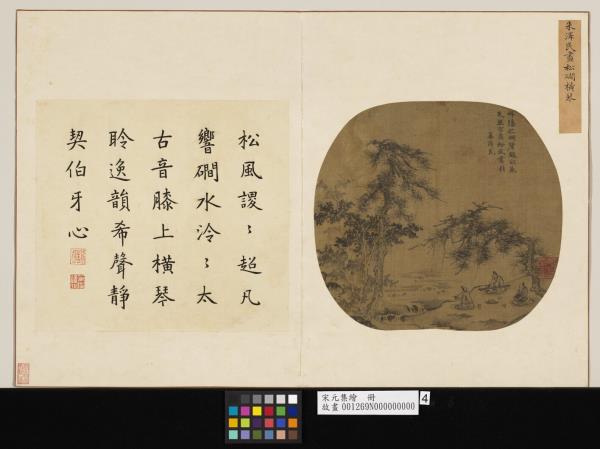 朱澤民畫松磵橫琴
松風謖〻超凡
響磵水泠〻太
古音膝上橫琴
聆逸韻希聲靜
契伯牙心
宋元集繪 冊
故畫 001269N000000000
4